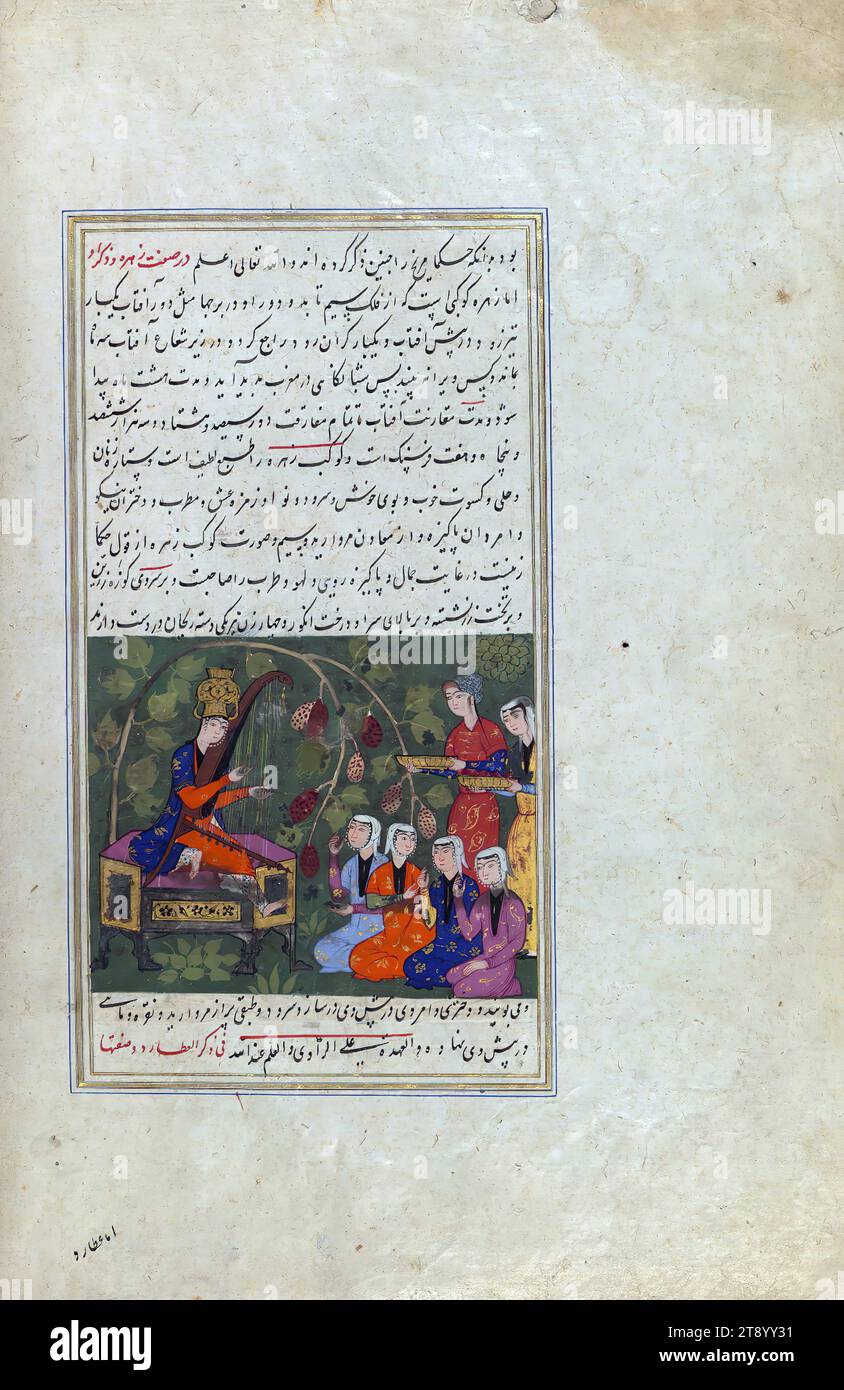 بود بدانکه حکما چنین ذکر کرده اند والله تعالی اعلم در صفت زهره و ذکر او
اما زهره کوکبی است که از فلک سیم تابد و دور او در برجها مثل دور آفتاب یکبار
تیزرو در پیش آفتاب و یکبار گران رو در راجع گردد در زیر شعاع آفتاب سه ماه
بماند و پس ویرا نه بینند پس شبانگاهی در مغرب پدید آید و مدت هشت ماه پیدا
شود و مدت مقارنت آفتاب تا تمام مفارقت دور سیصد و هشتاد و سه هزار ششصد
و پنجاه و هفت فرسنگ است و کوکب زهره را طبع لطیف است و ستاره زنان
و حلی و کسوت خوب و بوی خوش و سرود و نوا و زمزمه عیش و مطرب و دختران نیکو
و امردان پاکیزه و از معادن مروارید و سیم و صورت کوکب زهره از قول حکما
زنیست در غایت جمال و پاکیزه روی و لهو و طرب را صاحبت و بر سر وی کوزه زرین
و بر تخت زر نشسته و بر بالای سر او درخت انگور و چهار زن هر یکی دسته ریحان در دست دارند
و می بویند و دختری و امردی در پیش وی در ساز و سرود و طبقی پر از مروارید و نقره
در پیش وی نهاده والعهدة علی الراوی والعلم عند الله فی ذکر العطارد و صفتها
اما عطارد
alamy
Image ID: 2T8YY31
www.alamy.com